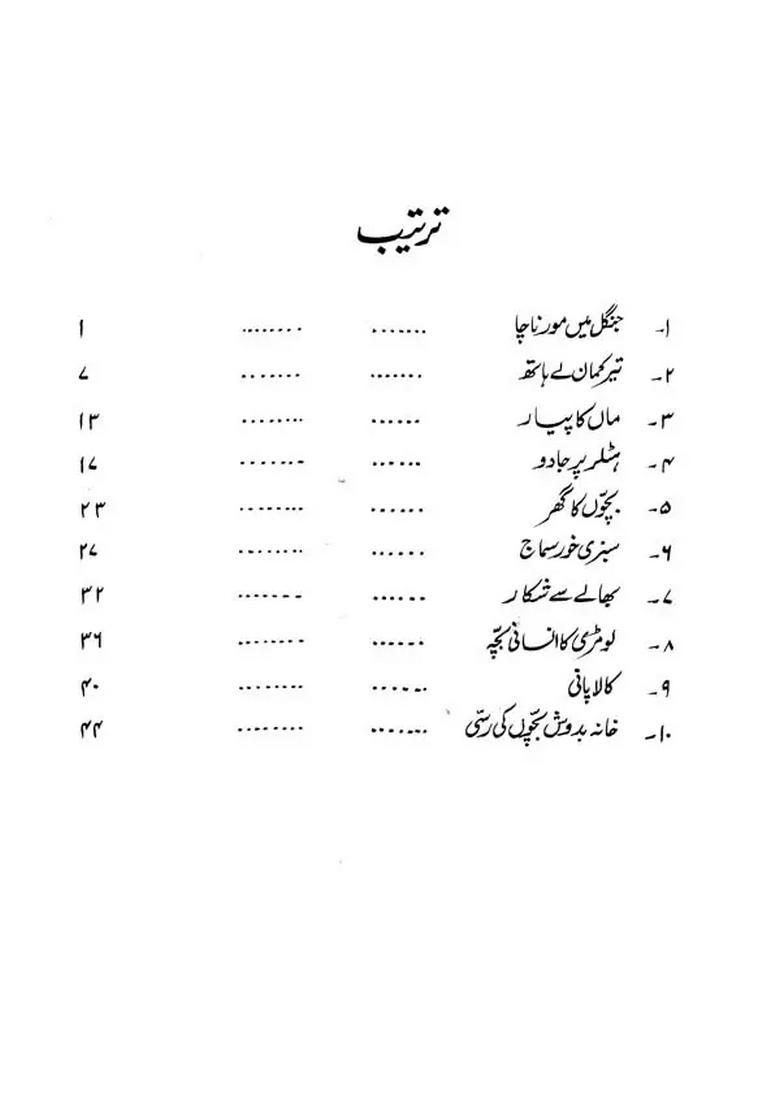 ترتیب
۱۔ جنگل میں مور ناچا ....... ........ ۱
۲۔ تیر کمان لے ہاتھ ....... ....... ۷
۳۔ ماں کا پیار ...... ........ ۱۳
۴۔ ہٹلر پر جادو ...... ....... ۱۷
۵۔ بچّوں کا گھر ...... ........ ۲۳
۶۔ سبزی خور سماج ...... ........ ۲۷
۷۔ بھالے سے شکار ...... ....... ۳۲
۸۔ لومڑی کا انسانی بچّہ ...... ........ ۳۶
۹۔ کالا پانی ...... ........ ۴۰
۱۰۔ خانہ بدوش بچّوں کی رسّی ....... ........ ۴۴